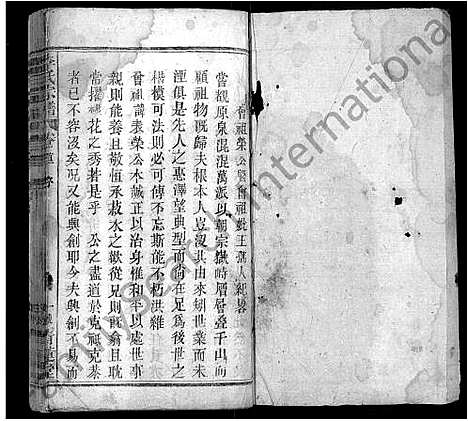 曾祖榮公暨曾祖妣王孺人紀畧
嘗觀原泉混混萬派以朝宗嶽峙層層疊千山而
顧祖物既歸夫根本人豈沒其由來矧世業而未
湮俱是先人之惠澤望典型而尚在足為後世之
楷模可法則必可傳不忘斯能不朽洪維
曾祖諱榮公本誠正以治身惟和平以處世事
親則能養且敬恒承菽水之歡從兄則既翕且耽
常擢棣花之秀若是乎 公之盡道於克禔克恭
者已不容沒矣況又能興創耶今夫興創不易而
氏宗譜 卷首 序